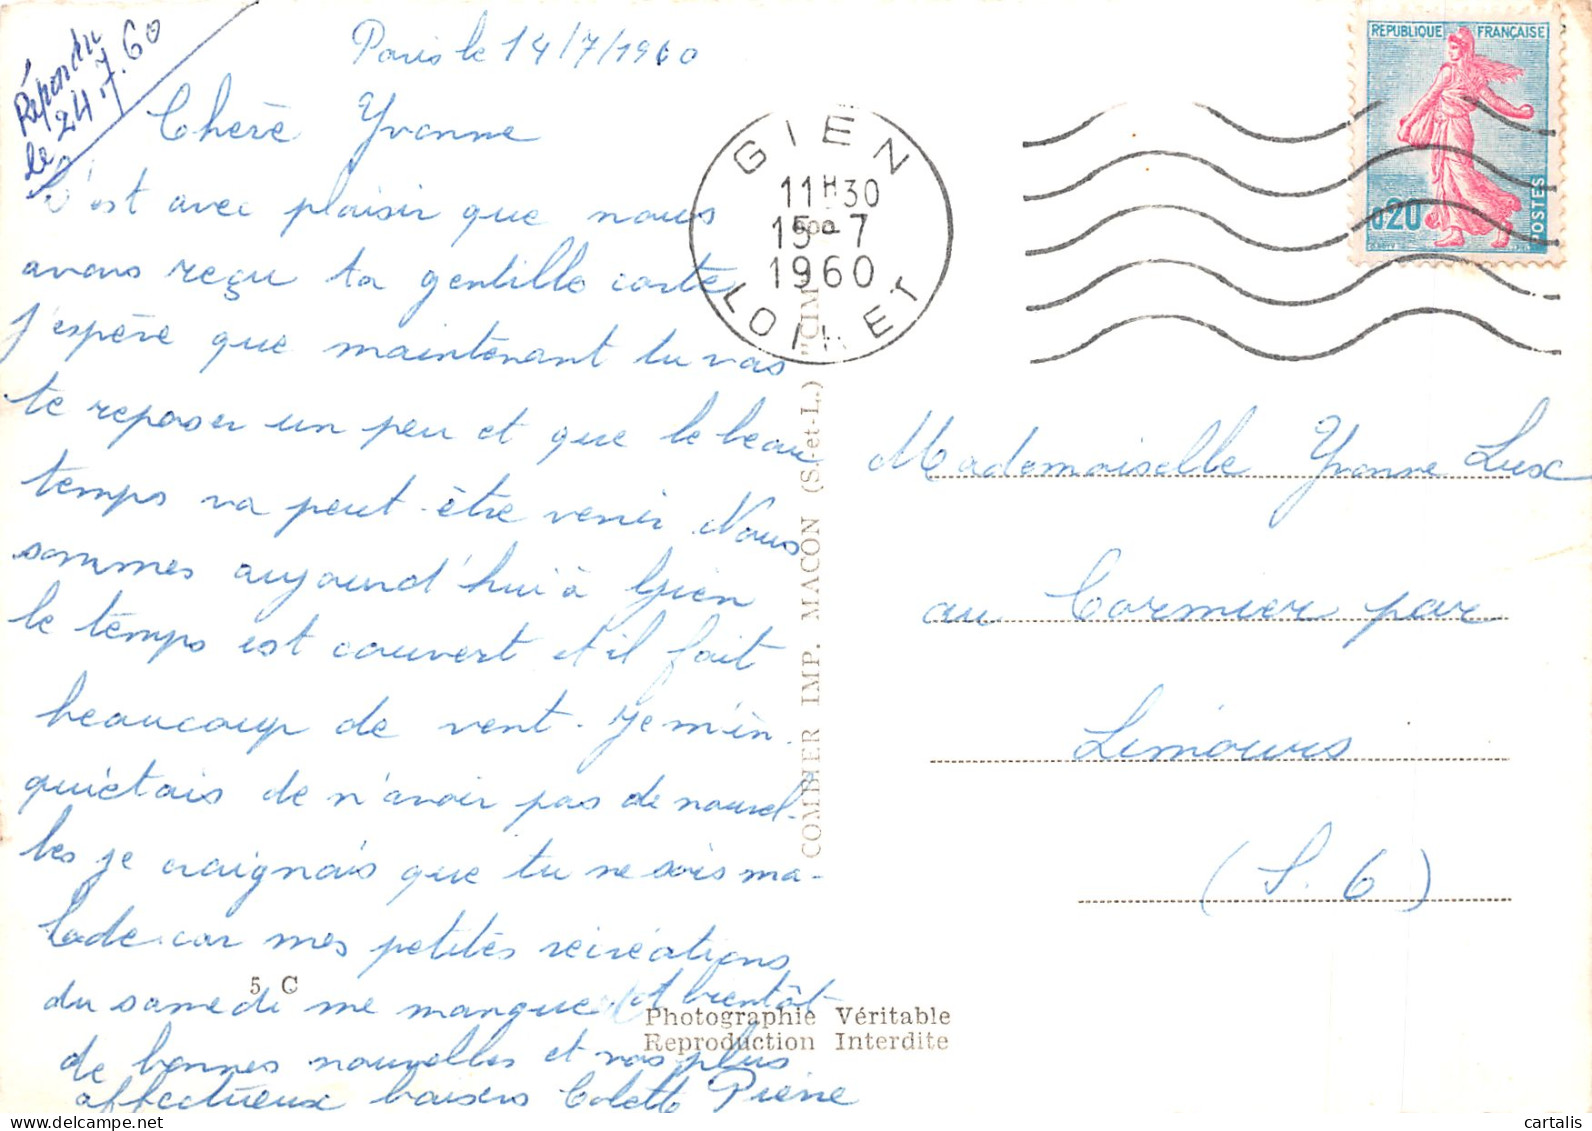 Répondu
le 24.7.60
Paris le 14/7/1960
Chère Yvonne
C'est avec plaisir que nous
avons reçu ta gentille carte
j'espère que maintenant tu vas
te reposer un peu et que le beau
temps va peut-être venir. Nous
sommes aujourd'hui à Gien
le temps est couvert et il fait
beaucoup de vent. Je m'in-
quiétais de n'avoir pas de nouvel-
les je craignais que tu ne sois ma-
lade car mes petites récréations
du samedi me manque et bientôt
de bonnes nouvelles et nos plus
affectueux baisers Colette Pierre
GIEN
11H30
15 - 7
1960
LOIRET
REPUBLIQUE FRANÇAISE
0,20
POSTES
Mademoiselle Yvonne Lux
au Cormier par
Limours
(S. 6)
COMBIER IMP. MACON (S.-et-L.) "CIM"
5 C
Photographie Véritable
Reproduction Interdite
cartalis